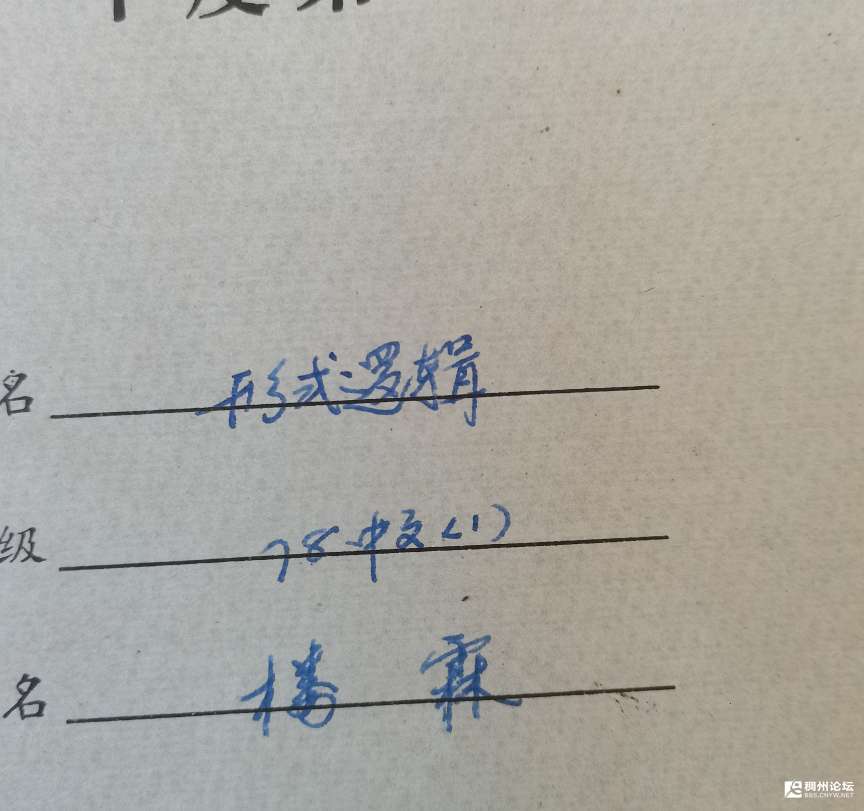 年度第
名 形式逻辑
级 78中文(1)
名 楼霖
稠州论坛
BBS.CNYW.NET